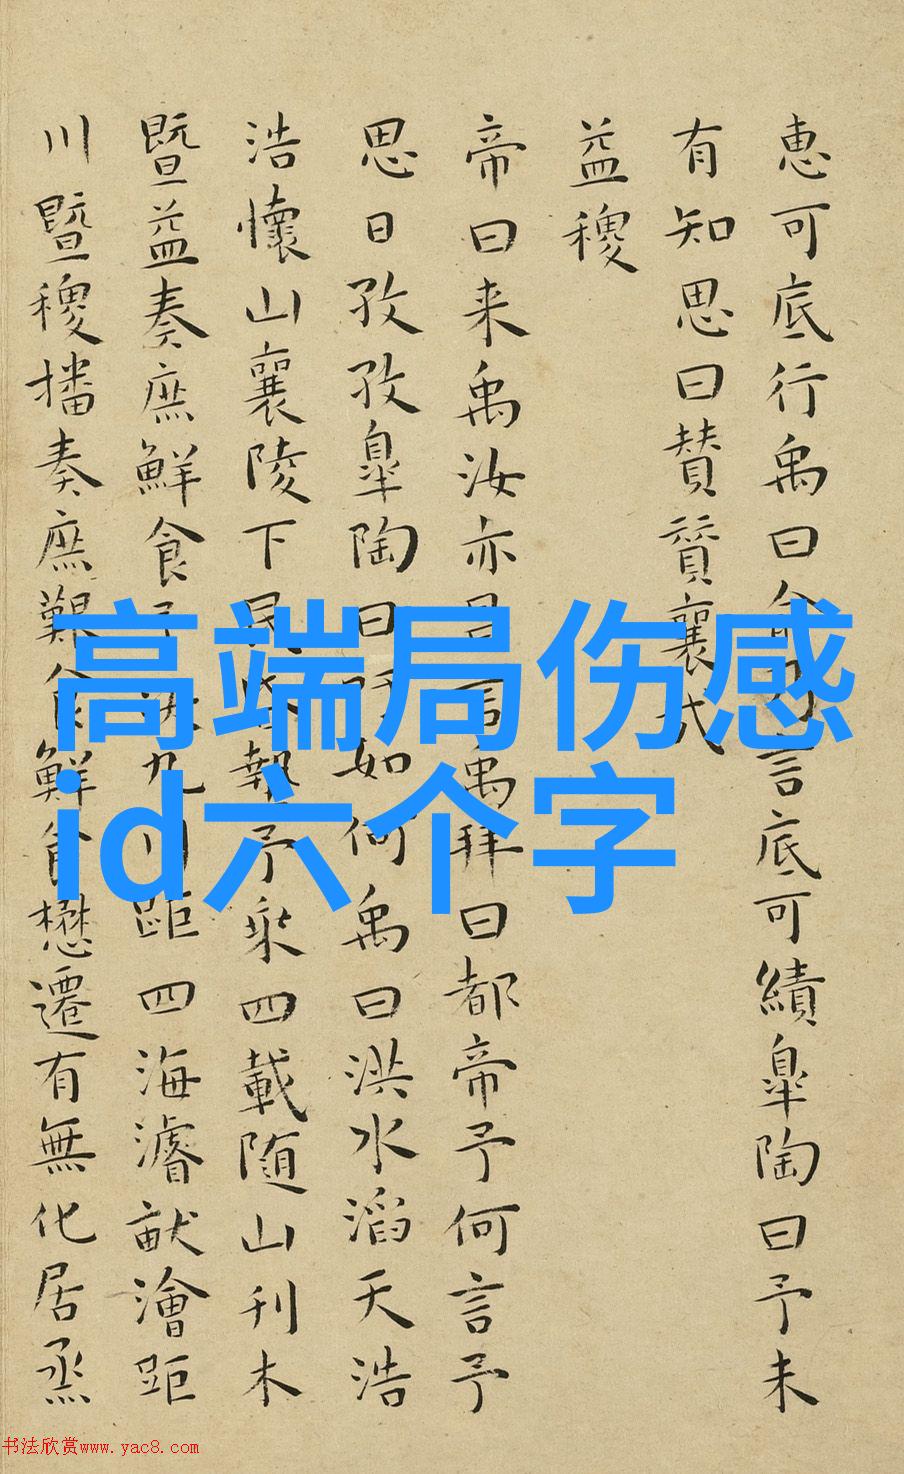 恵可底行禹曰俞乃言底可績皐陶曰予未
有知思曰賛賛襄
益稷
帝曰来禹汝亦昌言禹拜曰都帝予何言予
思日孜孜皐陶曰如何禹曰洪水滔天浩
浩懷山襄陵下民予乘四載随山刊木
暨益奏庶鮮食予九川距四海濬畎澮距
川暨稷播奏庶艱食鮮食懋遷有無化居烝
高端局伤感
id六个字
书法欣赏www.yac8.com